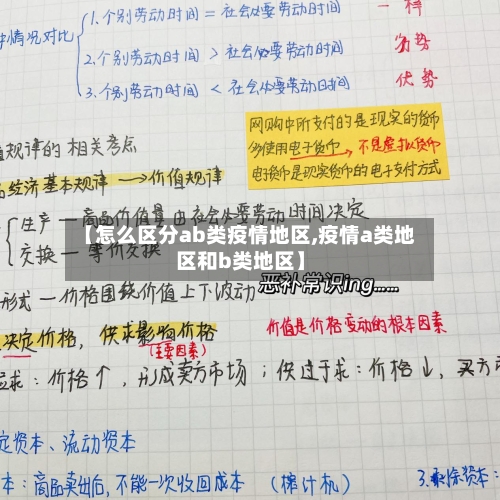 情况对比
1.个别劳动时间 = 社会必要劳动时间 一样
2.个别劳动时间 > 社会必要劳动时间 劣势
3.个别劳动时间 < 社会必要劳动时间 优势
网购中所支付的是现实的货币
使用电子货币 → 不是虚拟货币
电子货币是现实货币的电子支付方式
规律的相关考点
经济基本规律 → 价值规律
生产 — 商品价值量由社会必要劳动时间决定
交换 — 等价交换
【怎么区分ab类疫情地区,疫情a类地
区和b类地区】
形式 — 价格围绕价值上下波动
恶补常识ing……
决定价格, 供求影响价格
(主要因素)
价值是价格变动的根本因素
求:价格↑,形成卖方市场;供过于求:价格↓,买方
资本、流动资本
本:商品卖出后,不能一次收回成本 (榨汁机)
3.